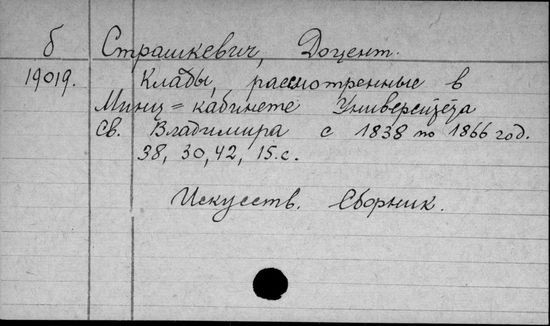 б Страшкевич, Доцент.
19019. Клады, рассмотренные в
Минц=кабинете Университета
Св. Владимира с 1838 по 1866 год.
38, 30, 42, 15.с.
Искусств. Сборник.